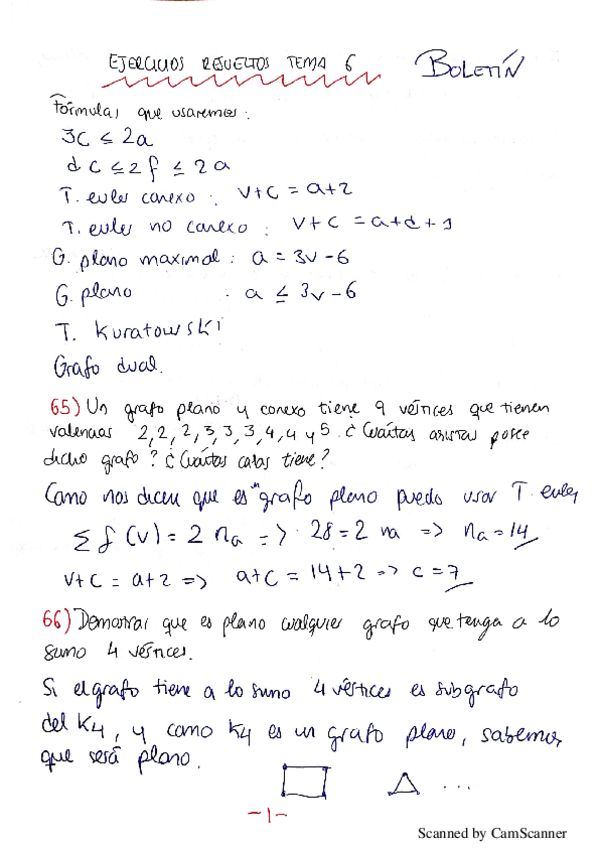 EJERCICIOS RESUELTOS TEMA 6 BOLETÍN
Fórmulas que usaremos:
3c ≤ 2a
d c ≤ 2 f ≤ 2 a
T. euler conexo : v+c = a+2
T. euler no conexo : v+c = a+d+1
G. plano maximal : a = 3v-6
G. plano : a ≤ 3v-6
T. Kuratowski
Grafo dual.
65) Un grafo plano y conexo tiene 9 vértices que tienen
valencias 2,2,2,3,3,3,4,4 y 5. ¿Cuántas aristas posee
dicho grafo? ¿Cuántas caras tiene?
Como nos dicen que es "grafo plano puedo usar T. euler
Σ f(v) = 2 na => 28 = 2 na => na = 14
v+c = a+2 => a+c = 14+2 => c = 7
66) Demostrar que es plano cualquier grafo que tenga a lo
sumo 4 vértices.
Si el grafo tiene a lo sumo 4 vértices es subgrafo
del K4, y como K4 es un grafo plano, sabemos
que será plano.
...
-1-
Scanned by CamScanner